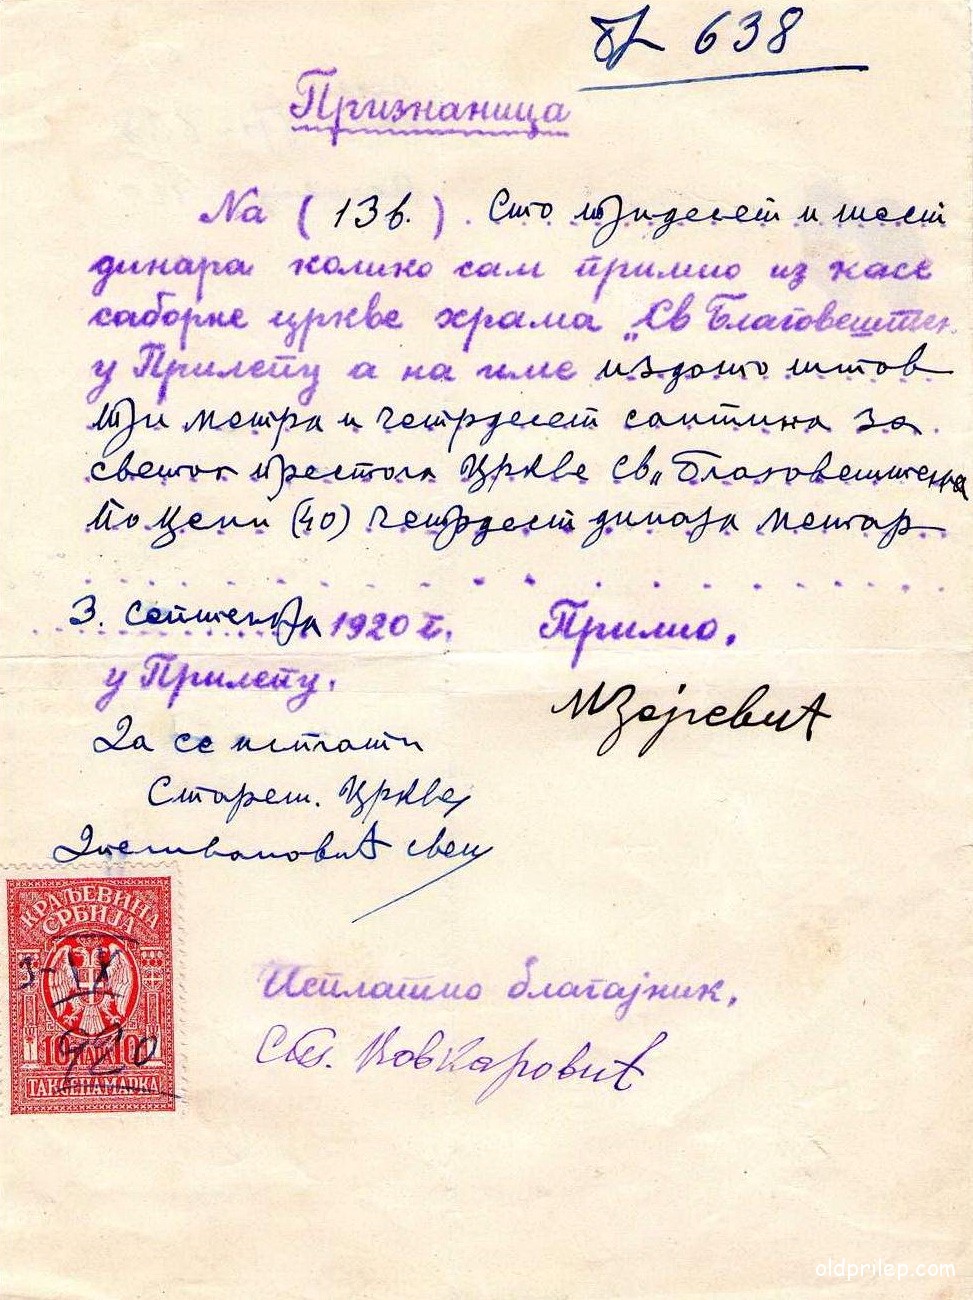 Бр 638
Признаница
На ( 136. ) . Сто тридесет и шест
динара колико сам примио из касе
саборне цркве храма „Св Благовештен.
у Прилепу а на име издато штов
три метра и четрдесет сантима за
светог престога Цркве Св „Благовештена
По цени (40) четрдест динара метар
3. Септембра 1920 г. Примио,
у Прилепу.
Да се исплати
Стареш. Цркве
свеш
КРАЉЕВИНА
СРБИЈА
3-IX
920
10 ПАРА 10
ТАКСЕНА МАРКА
Исплатио благајник,
Ст.
oldprilep.com